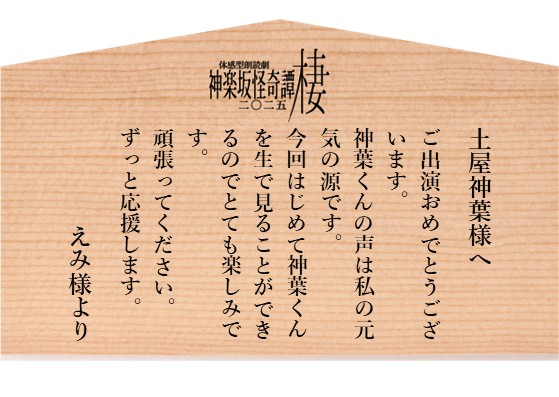 体感型朗読劇
神楽坂怪奇譚
棲
二〇二五
土屋神葉様へ
ご出演おめでとうござ
います。
神葉くんの声は私の元
気の源です。
今回はじめて神葉くん
を生で見ることができ
るのでとても楽しみで
す。
頑張ってください。
ずっと応援します。
えみ様より